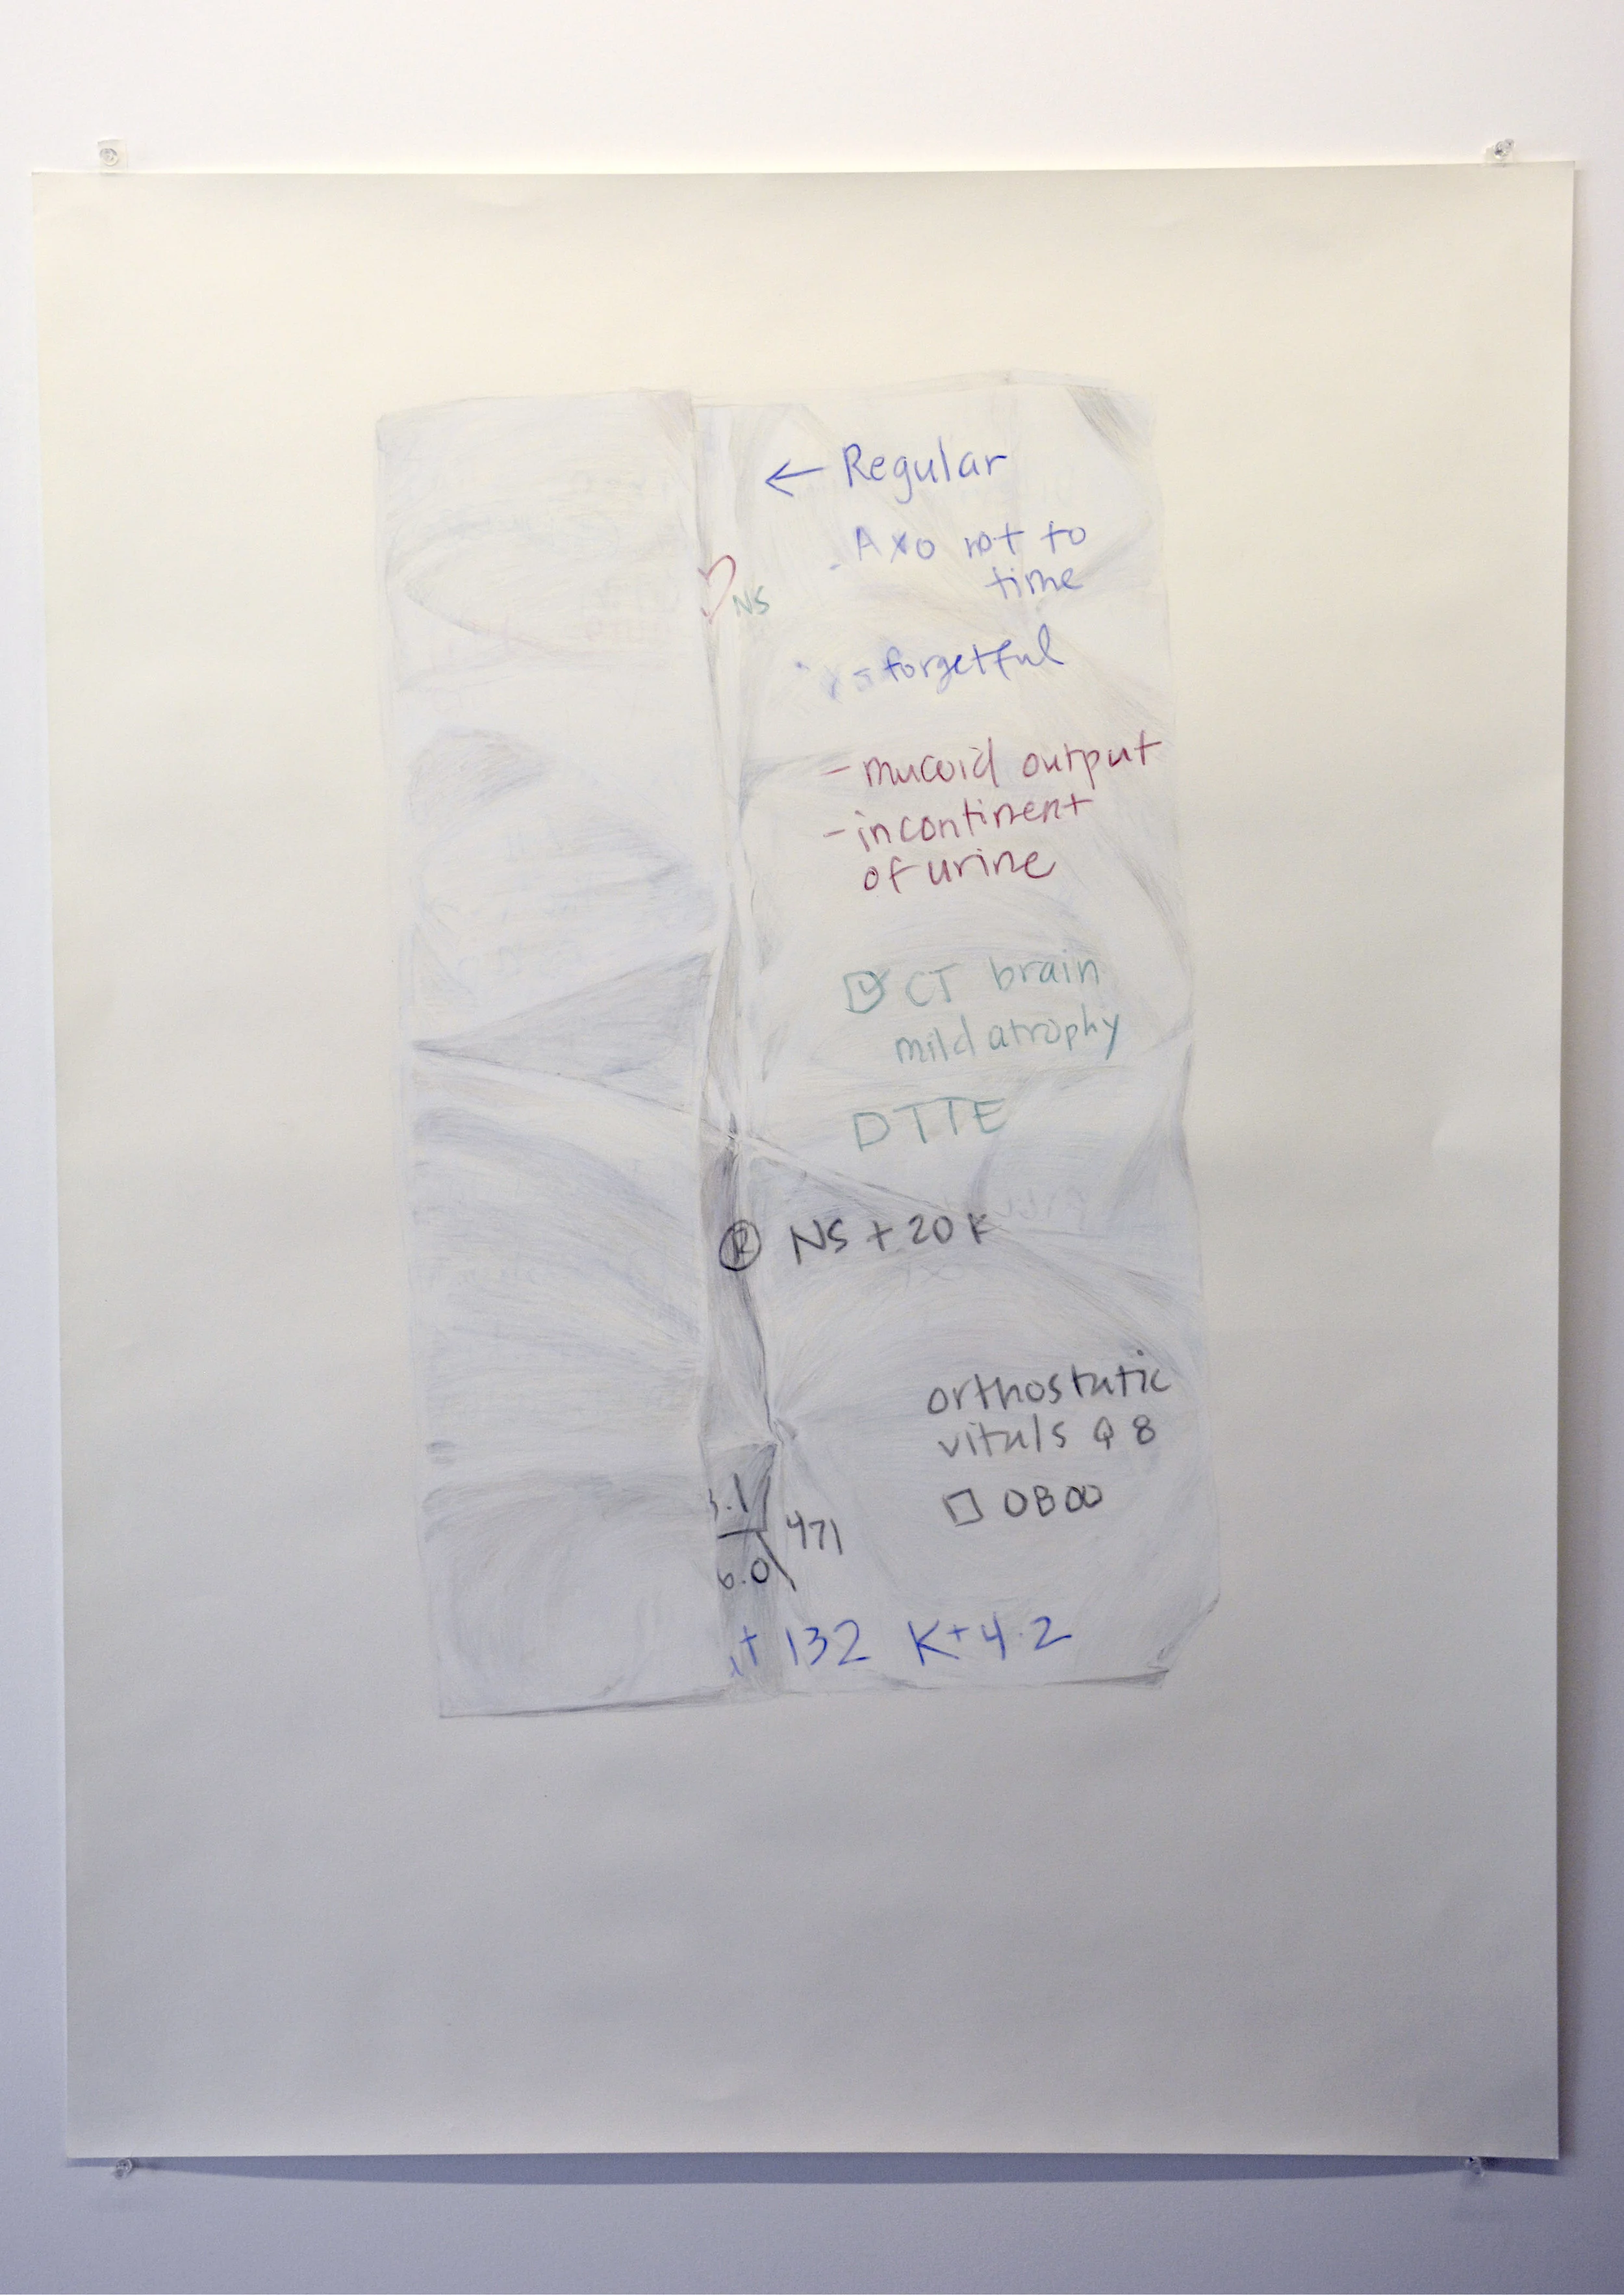 ← Regular
- AxO not to
time
NS
- forgetful
- mucoid output
- incontinent
of urine
☑ CT brain
mild atrophy
☐ TTE
Ⓡ NS + 20 K
orthostatic
vitals Q 8
☐ 0800
.1
471
6.0
+ 132 K+ 4.2